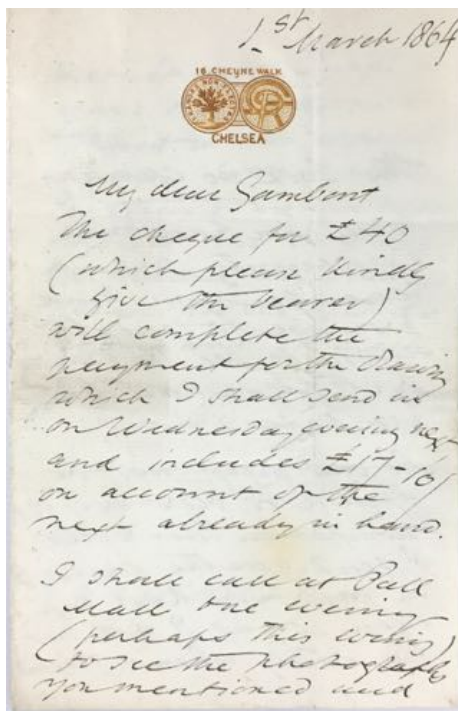 1st March 1864
16 CHEYNE WALK
CHELSEA
My dear Gambart
The cheque for £40
(which please kindly
give the bearer)
will complete the
payment for the Drawing
which I shall send in
on Wednesday evening next
and includes £17-10/
on account of the
next already in hand.
I shall call at Pall
Mall one evening
(perhaps this evening)
to see the photographs
you mentioned and